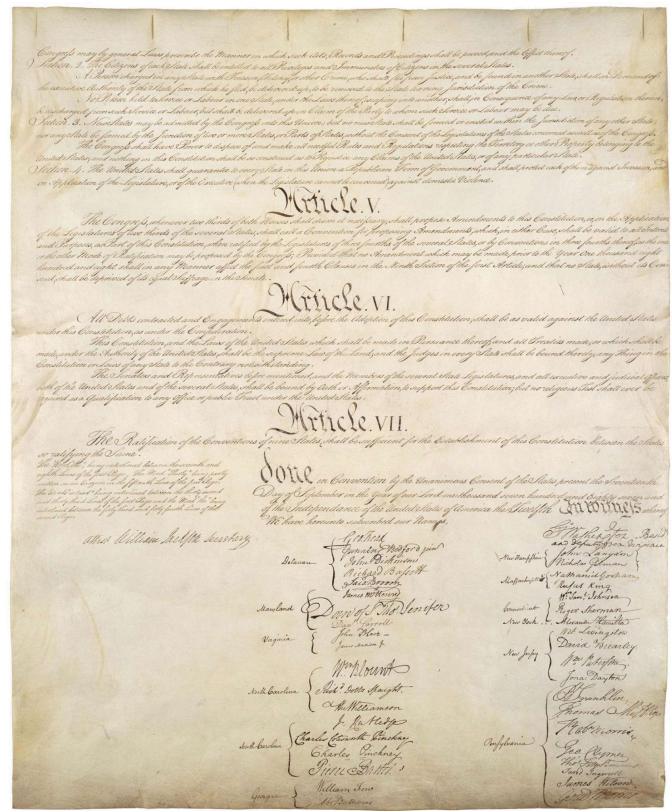 Congress may by general Laws prescribe the Manner in which such Acts, Records and Proceedings shall be proved, and the Effect thereof.
Section. 2. The Citizens of each State shall be entitled to all Privileges and Immunities of Citizens in the several States.
A Person charged in any State with Treason, Felony, or other Crime, who shall flee from Justice, and be found in another State, shall on Demand of
the executive Authority of the State from which he fled, be delivered up, to be removed to the State having Jurisdiction of the Crime.
No Person held to Service or Labour in one State, under the Laws thereof, escaping into another, shall, in Consequence of any Law or Regulation therein,
be discharged from such Service or Labour, but shall be delivered up on Claim of the Party to whom such Service or Labour may be due.
Section. 3. New States may be admitted by the Congress into this Union; but no new State shall be formed or erected within the Jurisdiction of any other State;
nor any State be formed by the Junction of two or more States, or Parts of States, without the Consent of the Legislatures of the States concerned as well as of the Congress.
The Congress shall have Power to dispose of and make all needful Rules and Regulations respecting the Territory or other Property belonging to the
United States; and nothing in this Constitution shall be so construed as to Prejudice any Claims of the United States, or of any particular State.
Section. 4. The United States shall guarantee to every State in this Union a Republican Form of Government, and shall protect each of them against Invasion; and
on Application of the Legislature, or of the Executive (when the Legislature cannot be convened) against domestic Violence.
Article. V.
The Congress, whenever two thirds of both Houses shall deem it necessary, shall propose Amendments to this Constitution, or, on the Application
of the Legislatures of two thirds of the several States, shall call a Convention for proposing Amendments, which, in either Case, shall be valid to all Intents
and Purposes, as Part of this Constitution, when ratified by the Legislatures of three fourths of the several States, or by Conventions in three fourths thereof, as the one
or the other Mode of Ratification may be proposed by the Congress; Provided that no Amendment which may be made prior to the Year One thousand eight
hundred and eight shall in any Manner affect the first and fourth Clauses in the Ninth Section of the first Article; and that no State, without its Con-
sent, shall be deprived of its equal Suffrage in the Senate.
Article. VI.
All Debts contracted and Engagements entered into, before the Adoption of this Constitution, shall be as valid against the United States
under this Constitution, as under the Confederation.
This Constitution, and the Laws of the United States which shall be made in Pursuance thereof; and all Treaties made, or which shall be
made, under the Authority of the United States, shall be the supreme Law of the Land; and the Judges in every State shall be bound thereby, any Thing in the
Constitution or Laws of any State to the Contrary notwithstanding.
The Senators and Representatives before mentioned, and the Members of the several State Legislatures, and all executive and judicial Officers,
both of the United States and of the several States, shall be bound by Oath or Affirmation, to support this Constitution; but no religious Test shall ever be
required as a Qualification to any Office or public Trust under the United States.
Article. VII.
The Ratification of the Conventions of nine States, shall be sufficient for the Establishment of this Constitution between the States
so ratifying the Same.
done in Convention by the Unanimous Consent of the States present the Seventeenth
Day of September in the Year of our Lord one thousand seven hundred and Eighty seven and
of the Independence of the United States of America the Twelfth In Witness whereof
We have hereunto subscribed our Names,
Attest William Jackson Secretary
Delaware
Geo: Read
Gunning Bedford jun
John Dickinson
Richard Bassett
Jaco: Broom
Maryland
James McHenry
Dan of St Thos Jenifer
Danl Carroll
Virginia
John Blair
James Madison Jr
North Carolina
Wm Blount
Richd Dobbs Spaight.
Hu Williamson
South Carolina
J. Rutledge
Charles Cotesworth Pinckney
Charles Pinckney
Pierce Butler.
Georgia
William Few
Abr Baldwin
Go Washington Presidt
and deputy from Virginia
New Hampshire
John Langdon
Nicholas Gilman
Massachusetts
Nathaniel Gorham
Rufus King
Connecticut
Wm Saml Johnson
Roger Sherman
New York
Alexander Hamilton
New Jersey
Wil: Livingston
David Brearley
Wm Paterson
Jona: Dayton
Pensylvania
B Franklin
Thomas Mifflin
Robt Morris
Geo. Clymer
Thos FitzSimons
Jared Ingersoll
James Wilson
Gouv Morris